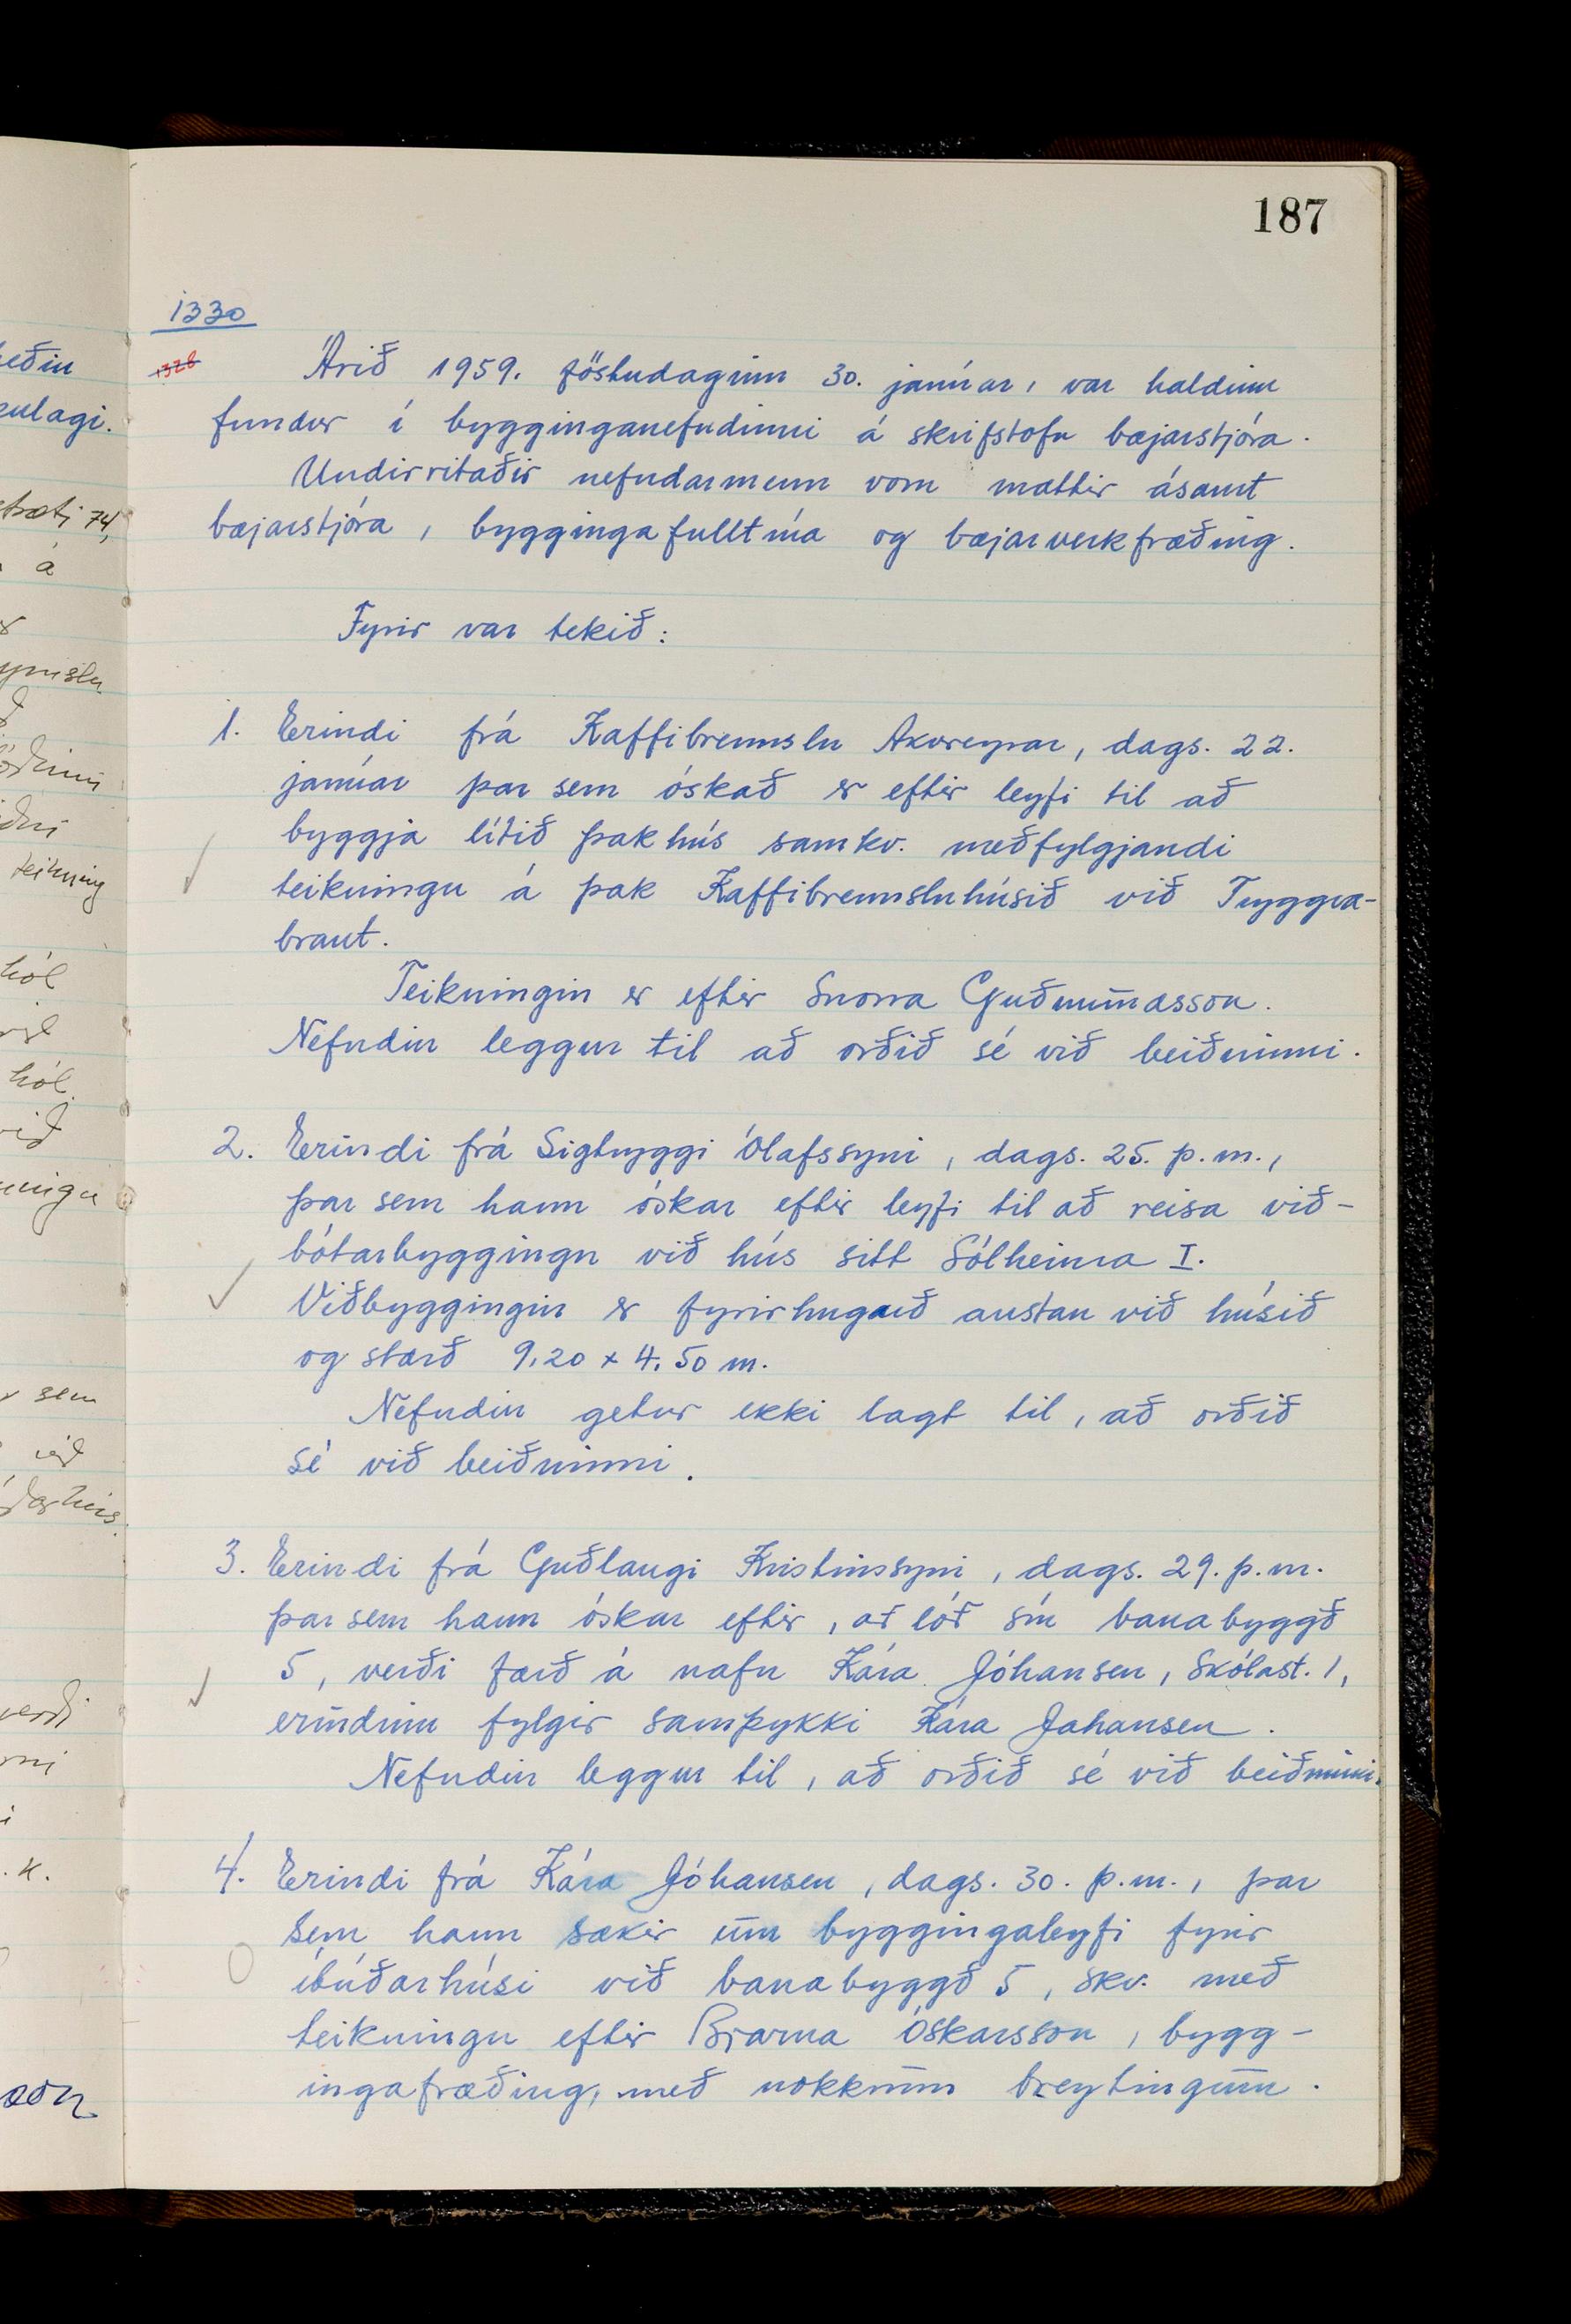 187
1330
1328
Árið 1959. föstudaginn 30. janúar, var haldinn
fundur í bygginganefndinni á skrifstofu bæjarstjóra.
Undirritaðir nefndarmenn voru mættir ásamt
bæjarstjóra, byggingafulltrúa og bæjarverkfræðing.
Fyrir var tekið:
1. Erindi frá Kaffibrennslu Akureyrar, dags. 22.
janúar þar sem óskað er eftir leyfi til að
byggja lítið þakhús samkv. meðfylgjandi
teikningu á þak Kaffibrennsluhúsið við Tryggva-
braut.
Teikningin er eftir Snorra Guðmundsson.
Nefndin leggur til að orðið sé við beiðninni.
2. Erindi frá Sigtryggi Ólafssyni, dags. 25. þ.m.,
þar sem hann óskar eftir leyfi til að reisa við-
bótarbyggingu við hús sitt Sólheima I.
Viðbyggingin er fyrirhugaið austan við húsið
og stærð 9,20 x 4,50 m.
Nefndin getur ekki lagt til, að orðið
sé við beiðninni.
3. Erindi frá Guðlaugi Kristinssyni, dags. 29. þ.m.
þar sem hann óskar eftir, að lóð sín Ránabyggð
5, verði færð á nafn Kára Jóhansen, Skólast. 1,
erindinu fylgir samþykki Kára Johansen.
Nefndin leggur til, að orðið sé við beiðninni.
4. Erindi frá Kára Jóhansen, dags. 30. þ.m., þar
sem hann sækir um byggingaleyfi fyrir
íbúðarhúsi við Ránabyggð 5, skv. með
teikningu eftir Bjarna Óskarsson, bygg-
ingafræðing, með nokkrum breytingum.